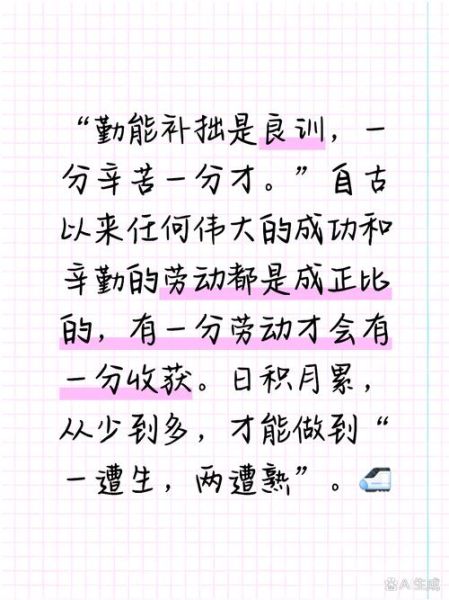 “勤能补拙是良训，一
分辛苦一分才。”自古
以来任何伟大的成功和
辛勤的劳动都是成正比
的，有一分劳动才会有
一分收获。日积月累，
从少到多，才能做到“
一遭生，两遭熟”。
AI生成